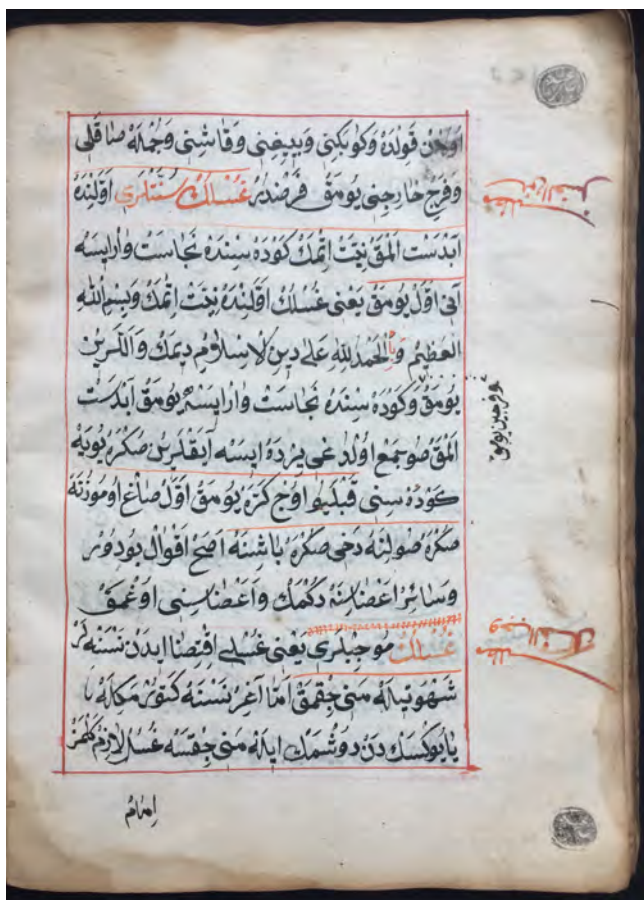 اوجن قولده وكوبكنى وبييغنى وقاشنى وجمله صاقلى
وفرج خارجنى يومق فرضدر غسلك سنتلرى اولنده
ابدست المق نيت اتمك كوده سنده نجاست وارايسه
انى اول يومق يعنى غسلك اولنده نيت اتمك وبسم الله
العظيم والحمد لله على دين الاسلام ديمك واللرين
يومق وكوده سنده نجاست وارايسه يومق ابدست
المق صو جمع اولدغى يرده ايسه ايقلرين صكره يويه
كوده سنى قپليو اوج كره يومق اول صاغ اوموزنه
صكره صولنه دخى صكره باشنه اصح اقوال بودور
وسائر اعضاسنه دكمك واعضاسنى اوغمق
غسلك موجبلرى يعنى غسلى اقتضا ايدن نسنه لر
شهوتيله منى چقمق اما اغر نسنه كتورمكله يا
يا يوكسك دن دوشمك ايله منى چقسه غسل لازم كلمز
امام
وفرجين يومق